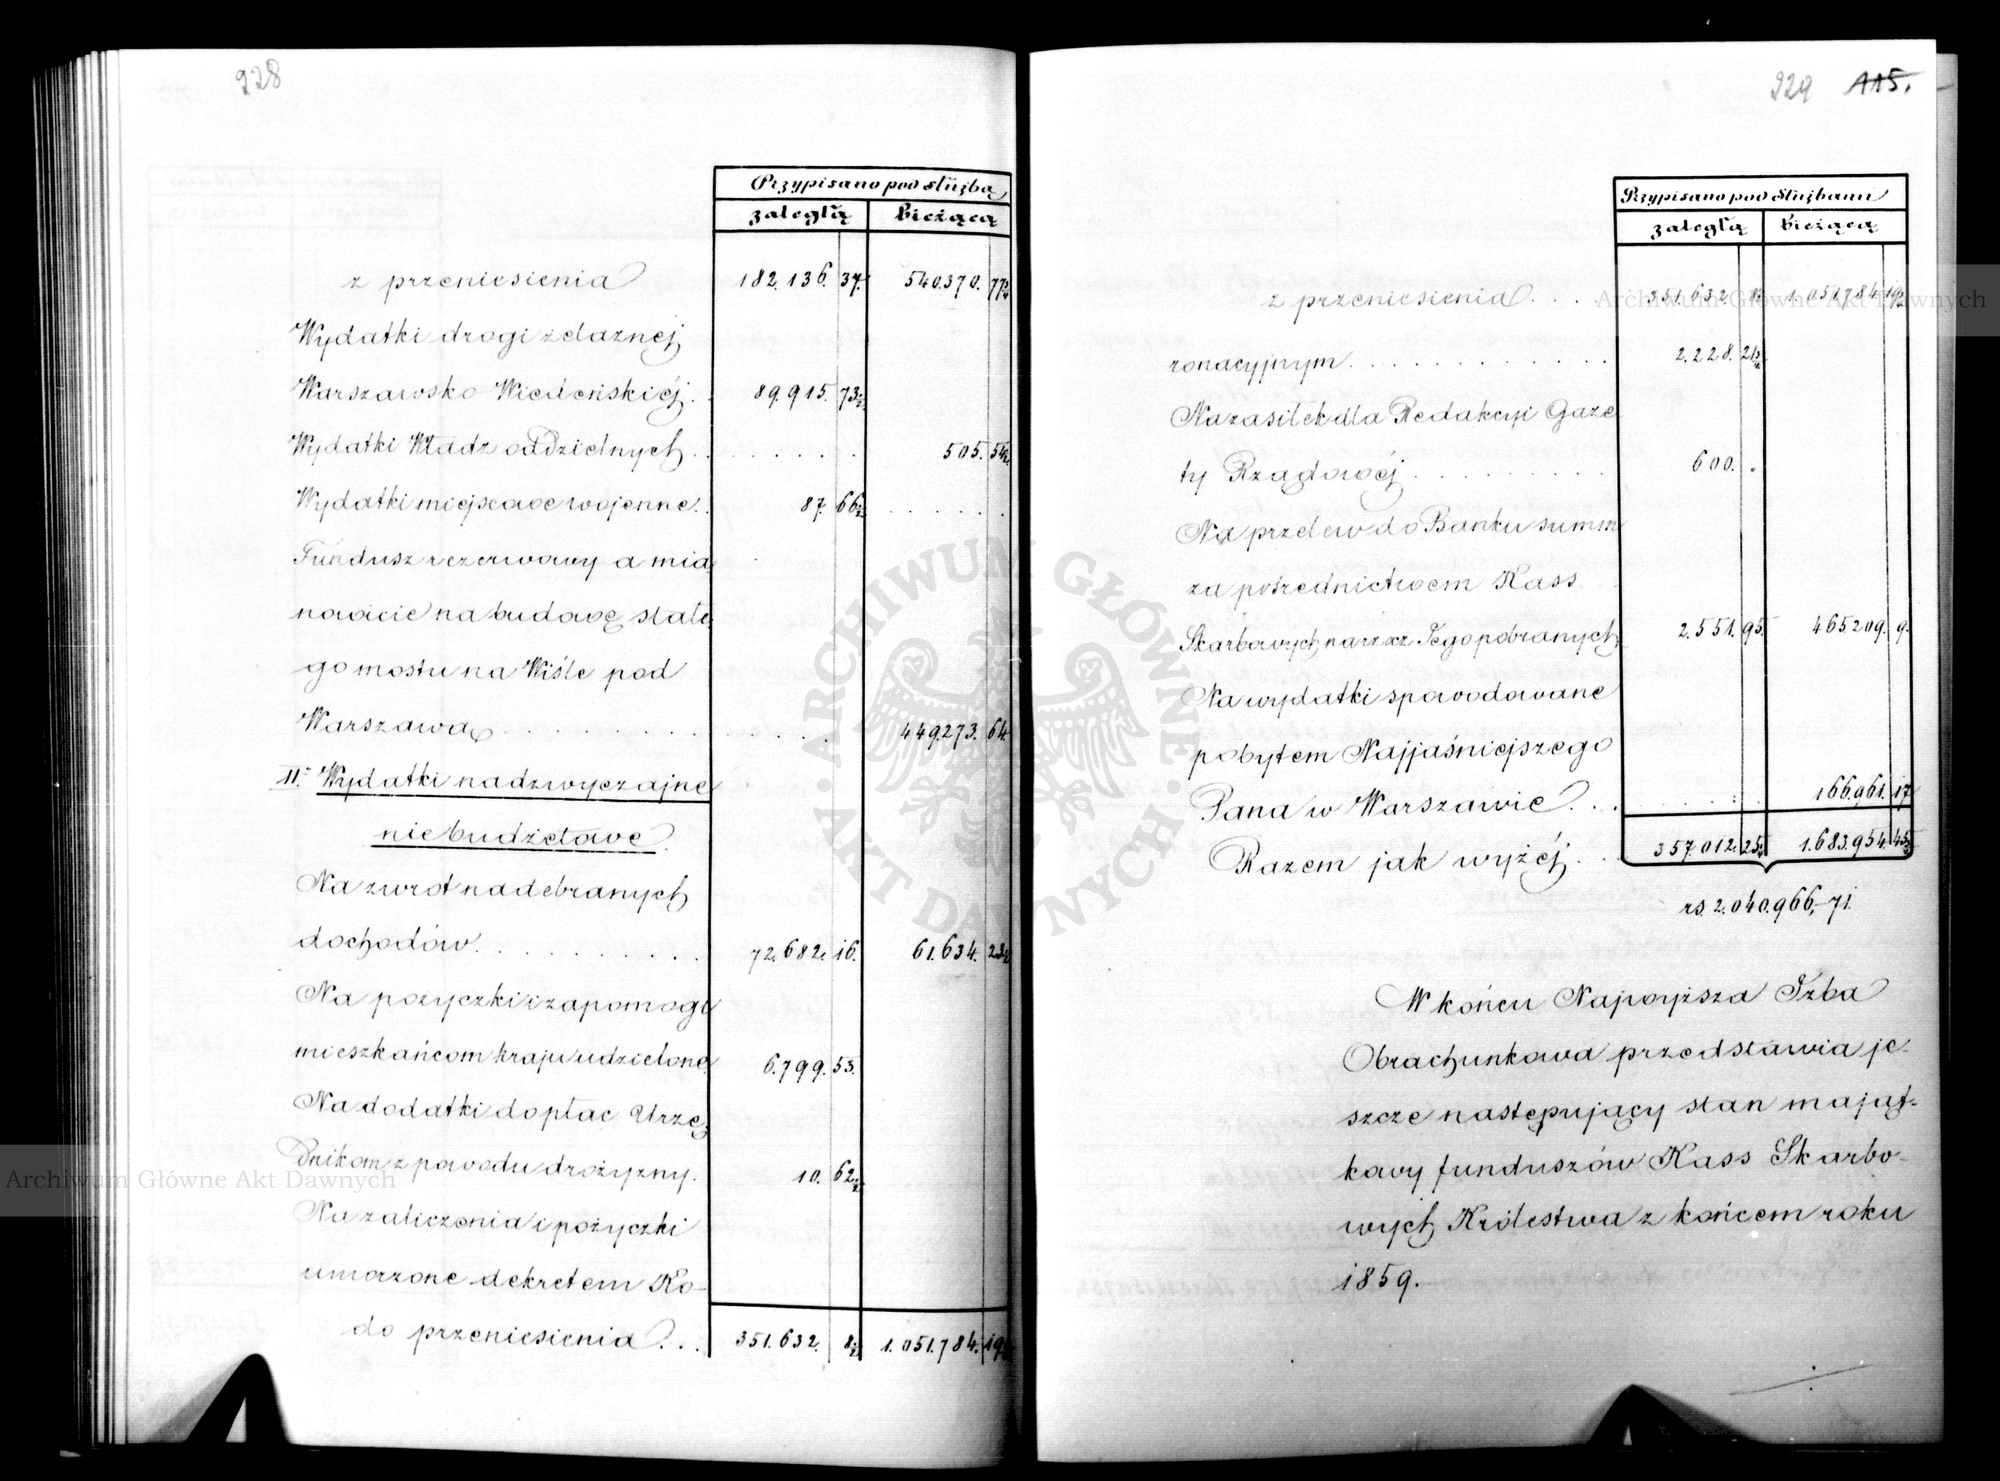 228
Przypisano pod służbą
zaległą bieżącą
z przeniesienia 182.136. 37. 540.370. 77
Wydatki drogi żelaznej
Warszawsko Wiedeńskiéj. 89.915. 73½
Wydatki Władz oddzielnych . . . . . . . 505. 54
Wydatki miejscowe wojenne. . 87. 66½ . . . . . .
Fundusz rezerwowy a mia
nowicie na budowę stałe
go mostu na Wiśle pod
Warszawą . . . . . . . . . . . . 449.273. 64
II. Wydatki nadzwyczajne
niebudżetowe.
Na zwrot nadebranych
dochodów. . . . . . . . . . 72.682. 16. 61.634. 23½
Na pożyczki i zapomogi
mieszkańcom kraju udzielone 6.799. 53.
Na dodatki do płac Urzę
dnikom z powodu drożyzny. 10. 62½
Na zaliczenia i pożyczki
umorzone dekretem Ko-
do przeniesienia . . . 351.632. 8½ 1.051.784. 19
229 115.
Przypisano pod Służbami
zaległą bieżącą
z przeniesienia . . . . 351.632. 8½ 1.051.784. 19
ronacyjnym . . . . . . . . . . . . 2.228. 21
Na zasiłek dla Redakcyi Gaze
ty Rządowéj . . . . . . . . . 600. .
Na przelew do Banku summ
za pośrednictwem Kass
Skarbowych na rzecz Jego pobranych 2.551. 95. 465209. 9.
Na wydatki spowodowane
pobytem Najjaśniejszego
Pana w Warszawie . . . . . . . . 166.961. 17
Razem jak wyżéj . . . 357.012. 25 1.683.954. 45
rs. 2.040.966,-71.
W końcu Najwyższa Izba
Obrachunkowa przedstawia je-
szcze następujący stan mająt-
kowy funduszów Kass Skarbo-
wych Królestwa z końcem roku
1859.
Archiwum Główne Akt Dawnych
Archiwum Główne Akt Dawnych
ARCHIWUM GŁÓWNE · AKT DAWNYCH ·